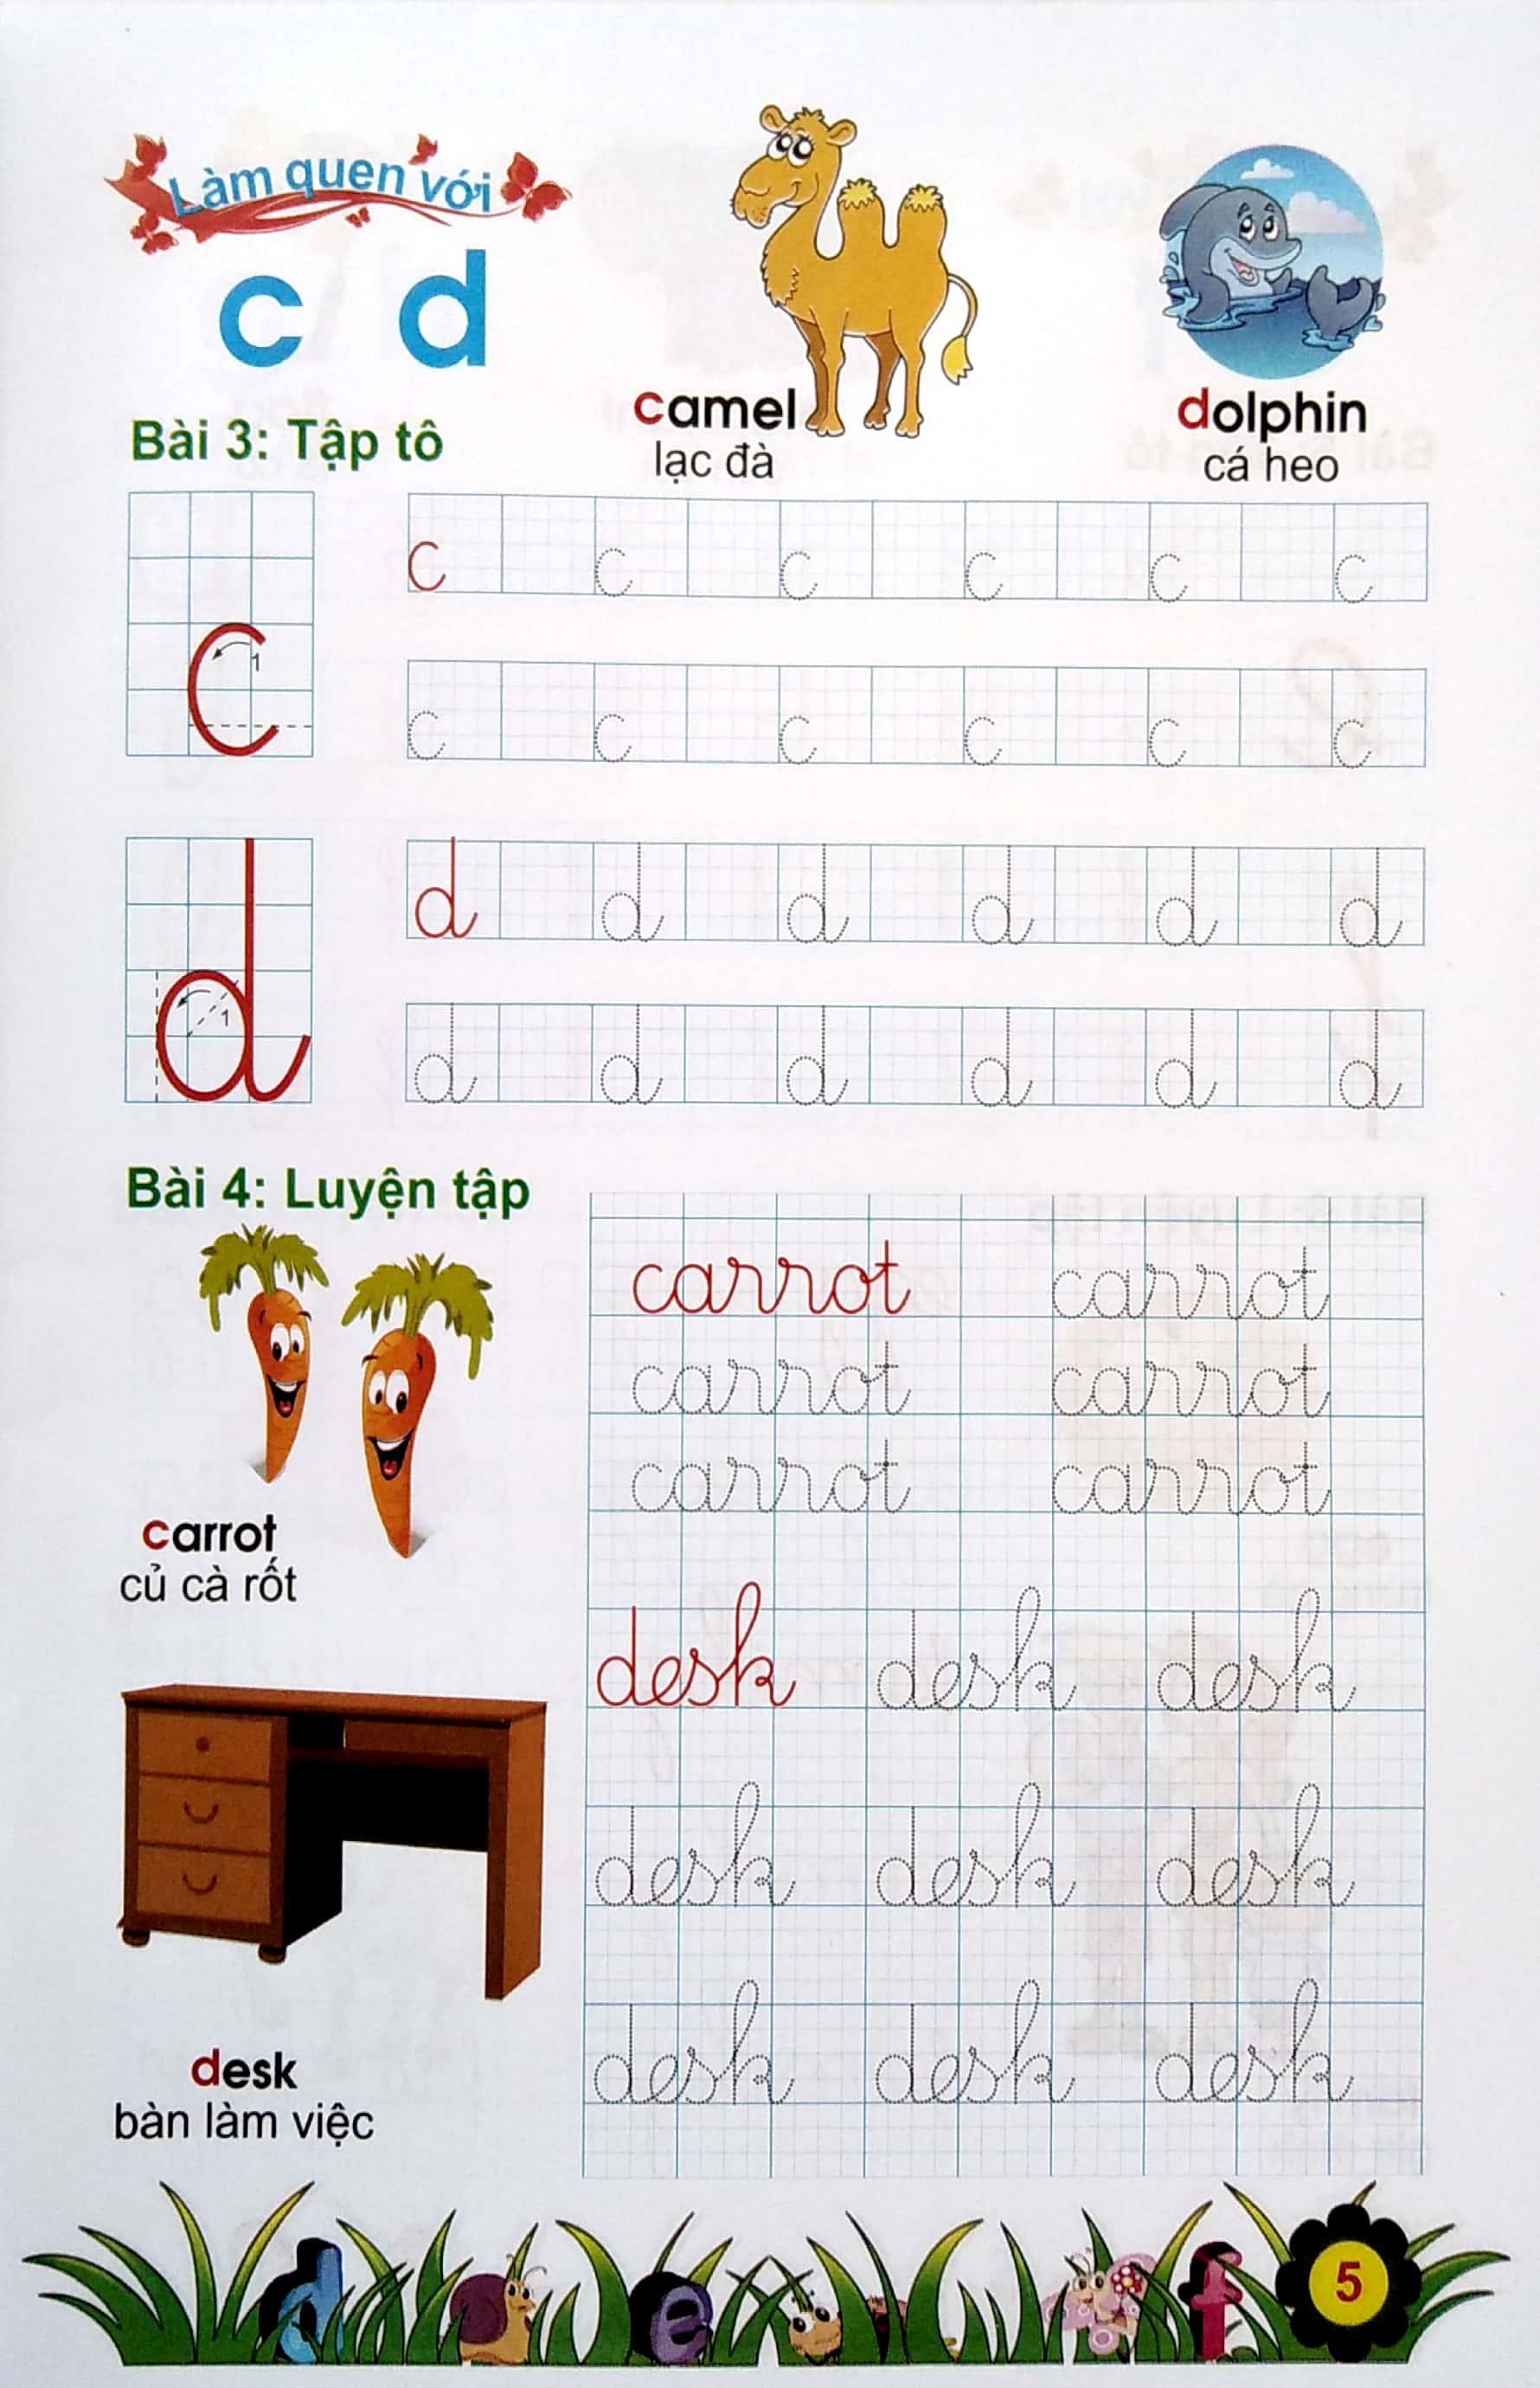 Làm quen với
c d
camel
lạc đà
dolphin
cá heo
Bài 3: Tập tô
c c c c c c
1
c
c c c c c c
d d d d d d
1
d
d d d d d d
Bài 4: Luyện tập
carrot carrot
carrot carrot
carrot carrot
carrot
củ cà rốt
desk desk desk
desk desk desk
desk desk desk
desk
bàn làm việc
d e f 5